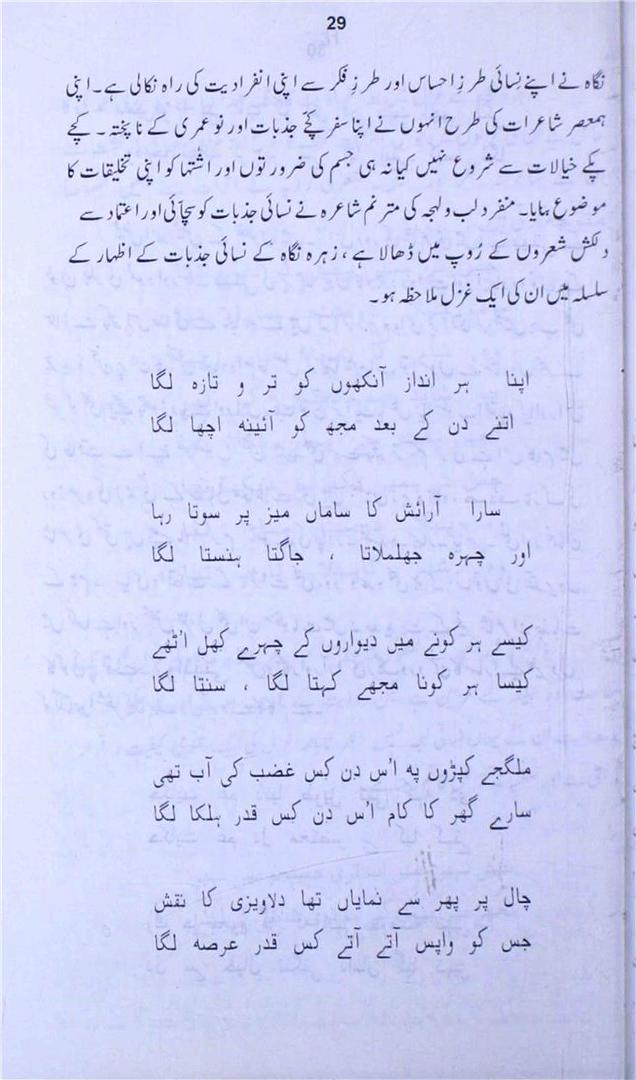 29
نگاہ نے اپنے نِسائی طرزِ احساس اور طرزِ فکر سے اپنی اِنفرادیت کی راہ نکالی ہے۔ اپنی
ہمعصر شاعرات کی طرح انہوں نے اپنا سفر کچّے جذبات اور نو عمری کے نا پختہ۔ کچے
پکے خیالات سے شروع نہیں کیا نہ ہی جسم کی ضرورتوں اور اشتہا کو اپنی تخلیقات کا
موضوع بنایا۔ منفرد لب و لہجہ کی مترنم شاعرہ نے نسائی جذبات کو سچّائی اور اعتماد سے
دلکش شعروں کے رُوپ میں ڈھالا ہے ، زہرہ نگاہ کے نسائی جذبات کے اظہار کے
سلسلہ میں ان کی ایک غزل ملاحظہ ہو۔
اپنا ہر انداز آنکھوں کو تر و تازہ لگا
اتنے دن کے بعد مجھ کو آئینہ اچھا لگا
سارا آرائش کا ساماں میز پر سوتا رہا
اور چہرہ جھلملاتا ، جاگتا ہنستا لگا
کیسے ہر کونے میں دیواروں کے چہرے کھل اُٹھے
کیسا ہر کونا مجھے کہتا لگا ، سنتا لگا
ملگجے کپڑوں پہ اُس دن کِس غضب کی آب تھی
سارے گھر کا کام اُس دن کس قدر ہلکا لگا
چال پر پھر سے نمایاں تھا دلاویزی کا نقش
جس کو واپس آتے آتے کس قدر عرصہ لگا